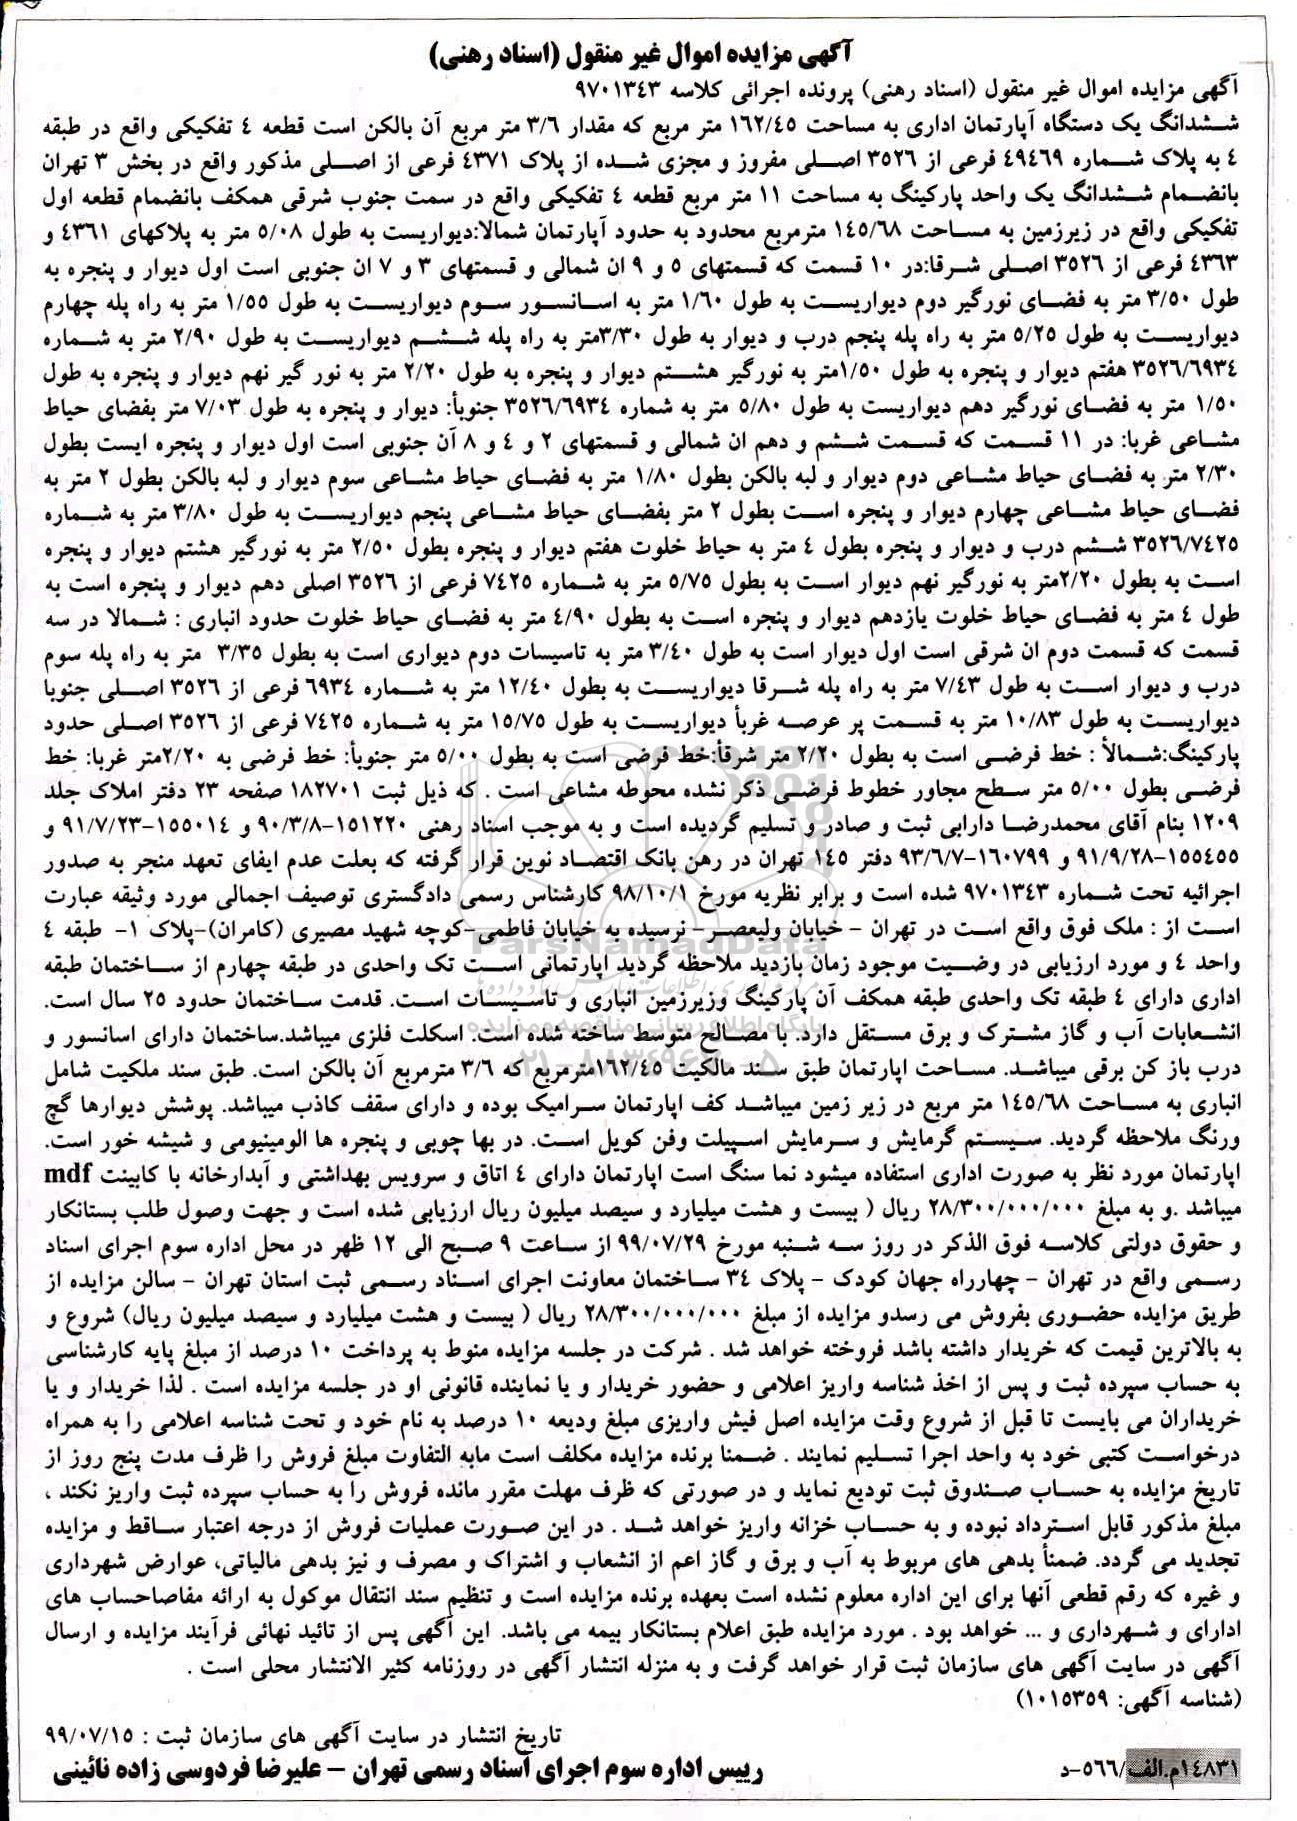 آگهی مزایده اموال غیر منقول (اسناد رهنی)
آگهی مزایده اموال غیر منقول (اسناد رهنی) پرونده اجرائی کلاسه ۹۷۰۱۳۴۳
ششدانگ یک دستگاه آپارتمان اداری به مساحت ۱۶۲/۴۵ متر مربع که مقدار ۳/۶ متر مربع آن بالکن است قطعه ۴ تفکیکی واقع در طبقه
۴ به پلاک شماره ۴۹۴۶۹ فرعی از ۳۵۲۶ اصلی مفروز و مجزی شده از پلاک ۴۳۷۱ فرعی از اصلی مذکور واقع در بخش ۳ تهران
بانضمام ششدانگ یک واحد پارکینگ به مساحت ۱۱ متر مربع قطعه ۴ تفکیکی واقع در سمت جنوب شرقی همکف بانضمام قطعه اول
تفکیکی واقع در زیرزمین به مساحت ۱۴۵/۶۸ مترمربع محدود به حدود آپارتمان شمالا:دیواریست به طول ۵/۰۸ متر به پلاکهای ۴۳۶۱ و
۴۳۶۳ فرعی از ۳۵۲۶ اصلی شرقا:در ۱۰ قسمت که قسمتهای ۵ و ۹ ان شمالی و قسمتهای ۳ و ۷ ان جنوبی است اول دیوار و پنجره به
طول ۳/۵۰ متر به فضای نورگیر دوم دیواریست به طول ۱/۶۰ متر به اسانسور سوم دیواریست به طول ۱/۵۵ متر به راه پله چهارم
دیواریست به طول ۵/۲۵ متر به راه پله پنجم درب و دیوار به طول ۳/۳۰متر به راه پله ششم دیواریست به طول ۲/۹۰ متر به شماره
۳۵۲۶/۶۹۳۴ هفتم دیوار و پنجره به طول ۱/۵۰متر به نورگیر هشتم دیوار و پنجره به طول ۲/۲۰ متر به نور گیر نهم دیوار و پنجره به طول
۱/۵۰ متر به فضای نورگیر دهم دیواریست به طول ۵/۸۰ متر به شماره ۳۵۲۶/۶۹۳۴ جنوبأ: دیوار و پنجره به طول ۷/۰۳ متر بفضای حیاط
مشاعی غربا: در ۱۱ قسمت که قسمت ششم و دهم ان شمالی و قسمتهای ۲ و ۴ و ۸ آن جنوبی است اول دیوار و پنجره ایست بطول
۲/۳۰ متر به فضای حیاط مشاعی دوم دیوار و لبه بالکن بطول ۱/۸۰ متر به فضای حیاط مشاعی سوم دیوار و لبه بالکن بطول ۲ متر به
فضای حیاط مشاعی چهارم دیوار و پنجره است بطول ۲ متر بفضای حیاط مشاعی پنجم دیواریست به طول ۳/۸۰ متر به شماره
۳۵۲۶/۷۴۲۵ ششم درب و دیوار و پنجره بطول ۴ متر به حیاط خلوت هفتم دیوار و پنجره بطول ۲/۵۰ متر به نورگیر هشتم دیوار و پنجره
است به بطول ۲/۲۰متر به نورگیر نهم دیوار است به بطول ۵/۷۵ متر به شماره ۷۴۲۵ فرعی از ۳۵۲۶ اصلی دهم دیوار و پنجره است به
طول ۴ متر به فضای حیاط خلوت یازدهم دیوار و پنجره است به بطول ۴/۹۰ متر به فضای حیاط خلوت حدود انباری : شمالا در سه
قسمت که قسمت دوم ان شرقی است اول دیوار است به طول ۳/۴۰ متر به تاسیسات دوم دیواری است به بطول ۳/۳۵ متر به راه پله سوم
درب و دیوار است به طول ۷/۴۳ متر به راه پله شرقا دیواریست به بطول ۱۲/۴۰ متر به شماره ۶۹۳۴ فرعی از ۳۵۲۶ اصلی جنوبا
دیواریست به طول ۱۰/۸۳ متر به قسمت پر عرصه غربأ دیواریست به طول ۱۵/۷۵ متر به شماره ۷۴۲۵ فرعی از ۳۵۲۶ اصلی حدود
پارکینگ:شمالأ : خط فرضی است به بطول ۲/۲۰ متر شرقأ:خط فرضی است به بطول ۵/۰۰ متر جنوبأ: خط فرضی به ۲/۲۰متر غربا: خط
فرضی بطول ۵/۰۰ متر سطح مجاور خطوط فرضی ذکر نشده محوطه مشاعی است . که ذیل ثبت ۱۸۲۷۰۱ صفحه ۲۳ دفتر املاک جلد
۱۲۰۹ بنام آقای محمدرضا دارابی ثبت و صادر و تسلیم گردیده است و به موجب اسناد رهنی ۱۵۱۲۲۰-۹۰/۳/۸ و ۱۵۵۰۱۴-۹۱/۷/۲۳ و
۱۵۵۴۵۵-۹۱/۹/۲۸ و ۱۶۰۷۹۹-۹۳/۶/۷ دفتر ۱۴۵ تهران در رهن بانک اقتصاد نوین قرار گرفته که بعلت عدم ایفای تعهد منجر به صدور
اجرائیه تحت شماره ۹۷۰۱۳۴۳ شده است و برابر نظریه مورخ ۹۸/۱۰/۱ کارشناس رسمی دادگستری توصیف اجمالی مورد وثیقه عبارت
است از : ملک فوق واقع است در تهران - خیابان ولیعصر- نرسیده به خیابان فاطمی-کوچه شهید مصیری (کامران)-پلاک ۱- طبقه ۴
واحد ۴ و مورد ارزیابی در وضیت موجود زمان بازدید ملاحظه گردید اپارتمانی است تک واحدی در طبقه چهارم از ساختمان طبقه
اداری دارای ۴ طبقه تک واحدی طبقه همکف آن پارکینگ وزیرزمین انباری و تاسیسات است. قدمت ساختمان حدود ۲۵ سال است.
انشعابات آب و گاز مشترک و برق مستقل دارد. با مصالح متوسط ساخته شده است. اسکلت فلزی میباشد.ساختمان دارای اسانسور و
درب باز کن برقی میباشد. مساحت اپارتمان طبق سند مالکیت ۱۶۲/۴۵مترمربع که ۳/۶ مترمربع آن بالکن است. طبق سند ملکیت شامل
انباری به مساحت ۱۴۵/۶۸ متر مربع در زیر زمین میباشد کف اپارتمان سرامیک بوده و دارای سقف کاذب میباشد. پوشش دیوارها گچ
ورنگ ملاحظه گردید. سیستم گرمایش و سرمایش اسپیلت وفن کویل است. در بها چوبی و پنجره ها الومینیومی و شیشه خور است.
اپارتمان مورد نظر به صورت اداری استفاده میشود نما سنگ است اپارتمان دارای ۴ اتاق و سرویس بهداشتی و آبدارخانه با کابینت mdf
میباشد .و به مبلغ ۲۸/۳۰۰/۰۰۰/۰۰۰ ریال ( بیست و هشت میلیارد و سیصد میلیون ریال ارزیابی شده است و جهت وصول طلب بستانکار
و حقوق دولتی کلاسه فوق الذکر در روز سه شنبه مورخ ۹۹/۰۷/۲۹ از ساعت ۹ صبح الی ۱۲ ظهر در محل اداره سوم اجرای اسناد
رسمی واقع در تهران - چهارراه جهان کودک - پلاک ۳۴ ساختمان معاونت اجرای اسناد رسمی ثبت استان تهران - سالن مزایده از
طریق مزایده حضوری بفروش می رسدو مزایده از مبلغ ۲۸/۳۰۰/۰۰۰/۰۰۰ ریال ( بیست و هشت میلیارد و سیصد میلیون ریال) شروع و
به بالاترین قیمت که خریدار داشته باشد فروخته خواهد شد . شرکت در جلسه مزایده منوط به پرداخت ۱۰ درصد از مبلغ پایه کارشناسی
به حساب سپرده ثبت و پس از اخذ شناسه واریز اعلامی و حضور خریدار و یا نماینده قانونی او در جلسه مزایده است . لذا خریدار و یا
خریداران می بایست تا قبل از شروع وقت مزایده اصل فیش واریزی مبلغ ودیعه ۱۰ درصد به نام خود و تحت شناسه اعلامی را به همراه
درخواست کتبی خود به واحد اجرا تسلیم نمایند . ضمنا برنده مزایده مکلف است مابه التفاوت مبلغ فروش را ظرف مدت پنج روز از
تاریخ مزایده به حساب صندوق ثبت تودیع نماید و در صورتی که ظرف مهلت مقرر مانده فروش را به حساب سپرده ثبت واریز نکند ،
مبلغ مذکور قابل استرداد نبوده و به حساب خزانه واریز خواهد شد . در این صورت عملیات فروش از درجه اعتبار ساقط و مزایده
تجدید می گردد. ضمنأ بدهی های مربوط به آب و برق و گاز اعم از انشعاب و اشتراک و مصرف و نیز بدهی مالیاتی، عوارض شهرداری
و غیره که رقم قطعی آنها برای این اداره معلوم نشده است بعهده برنده مزایده است و تنظیم سند انتقال موکول به ارائه مفاصاحساب های
ادارای و شهرداری و ... خواهد بود . مورد مزایده طبق اعلام بستانکار بیمه می باشد. این آگهی پس از تائید نهائی فرآیند مزایده و ارسال
آگهی در سایت آگهی های سازمان ثبت قرار خواهد گرفت و به منزله انتشار آگهی در روزنامه کثیر الانتشار محلی است .
(شناسه آگهی: ۱۰۱۵۳۵۹)
تاریخ انتشار در سایت آگهی های سازمان ثبت : ۹۹/۰۷/۱۵
رییس اداره سوم اجرای اسناد رسمی تهران - علیرضا فردوسی زاده نائینی
۱۴۸۳۱م.الف/۵۶۶-د
ParsNamadData
پایگاه اطلاع رسانی مناقصه و مزایده